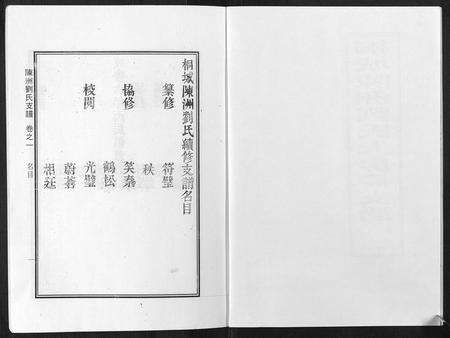 桐城陳洲劉氏續修支譜名目
纂修 符璧
秩
協修 笑泰
鶴松
校閱 光璧
蔚蒼
相廷
陳洲劉氏支譜 卷之一 名目